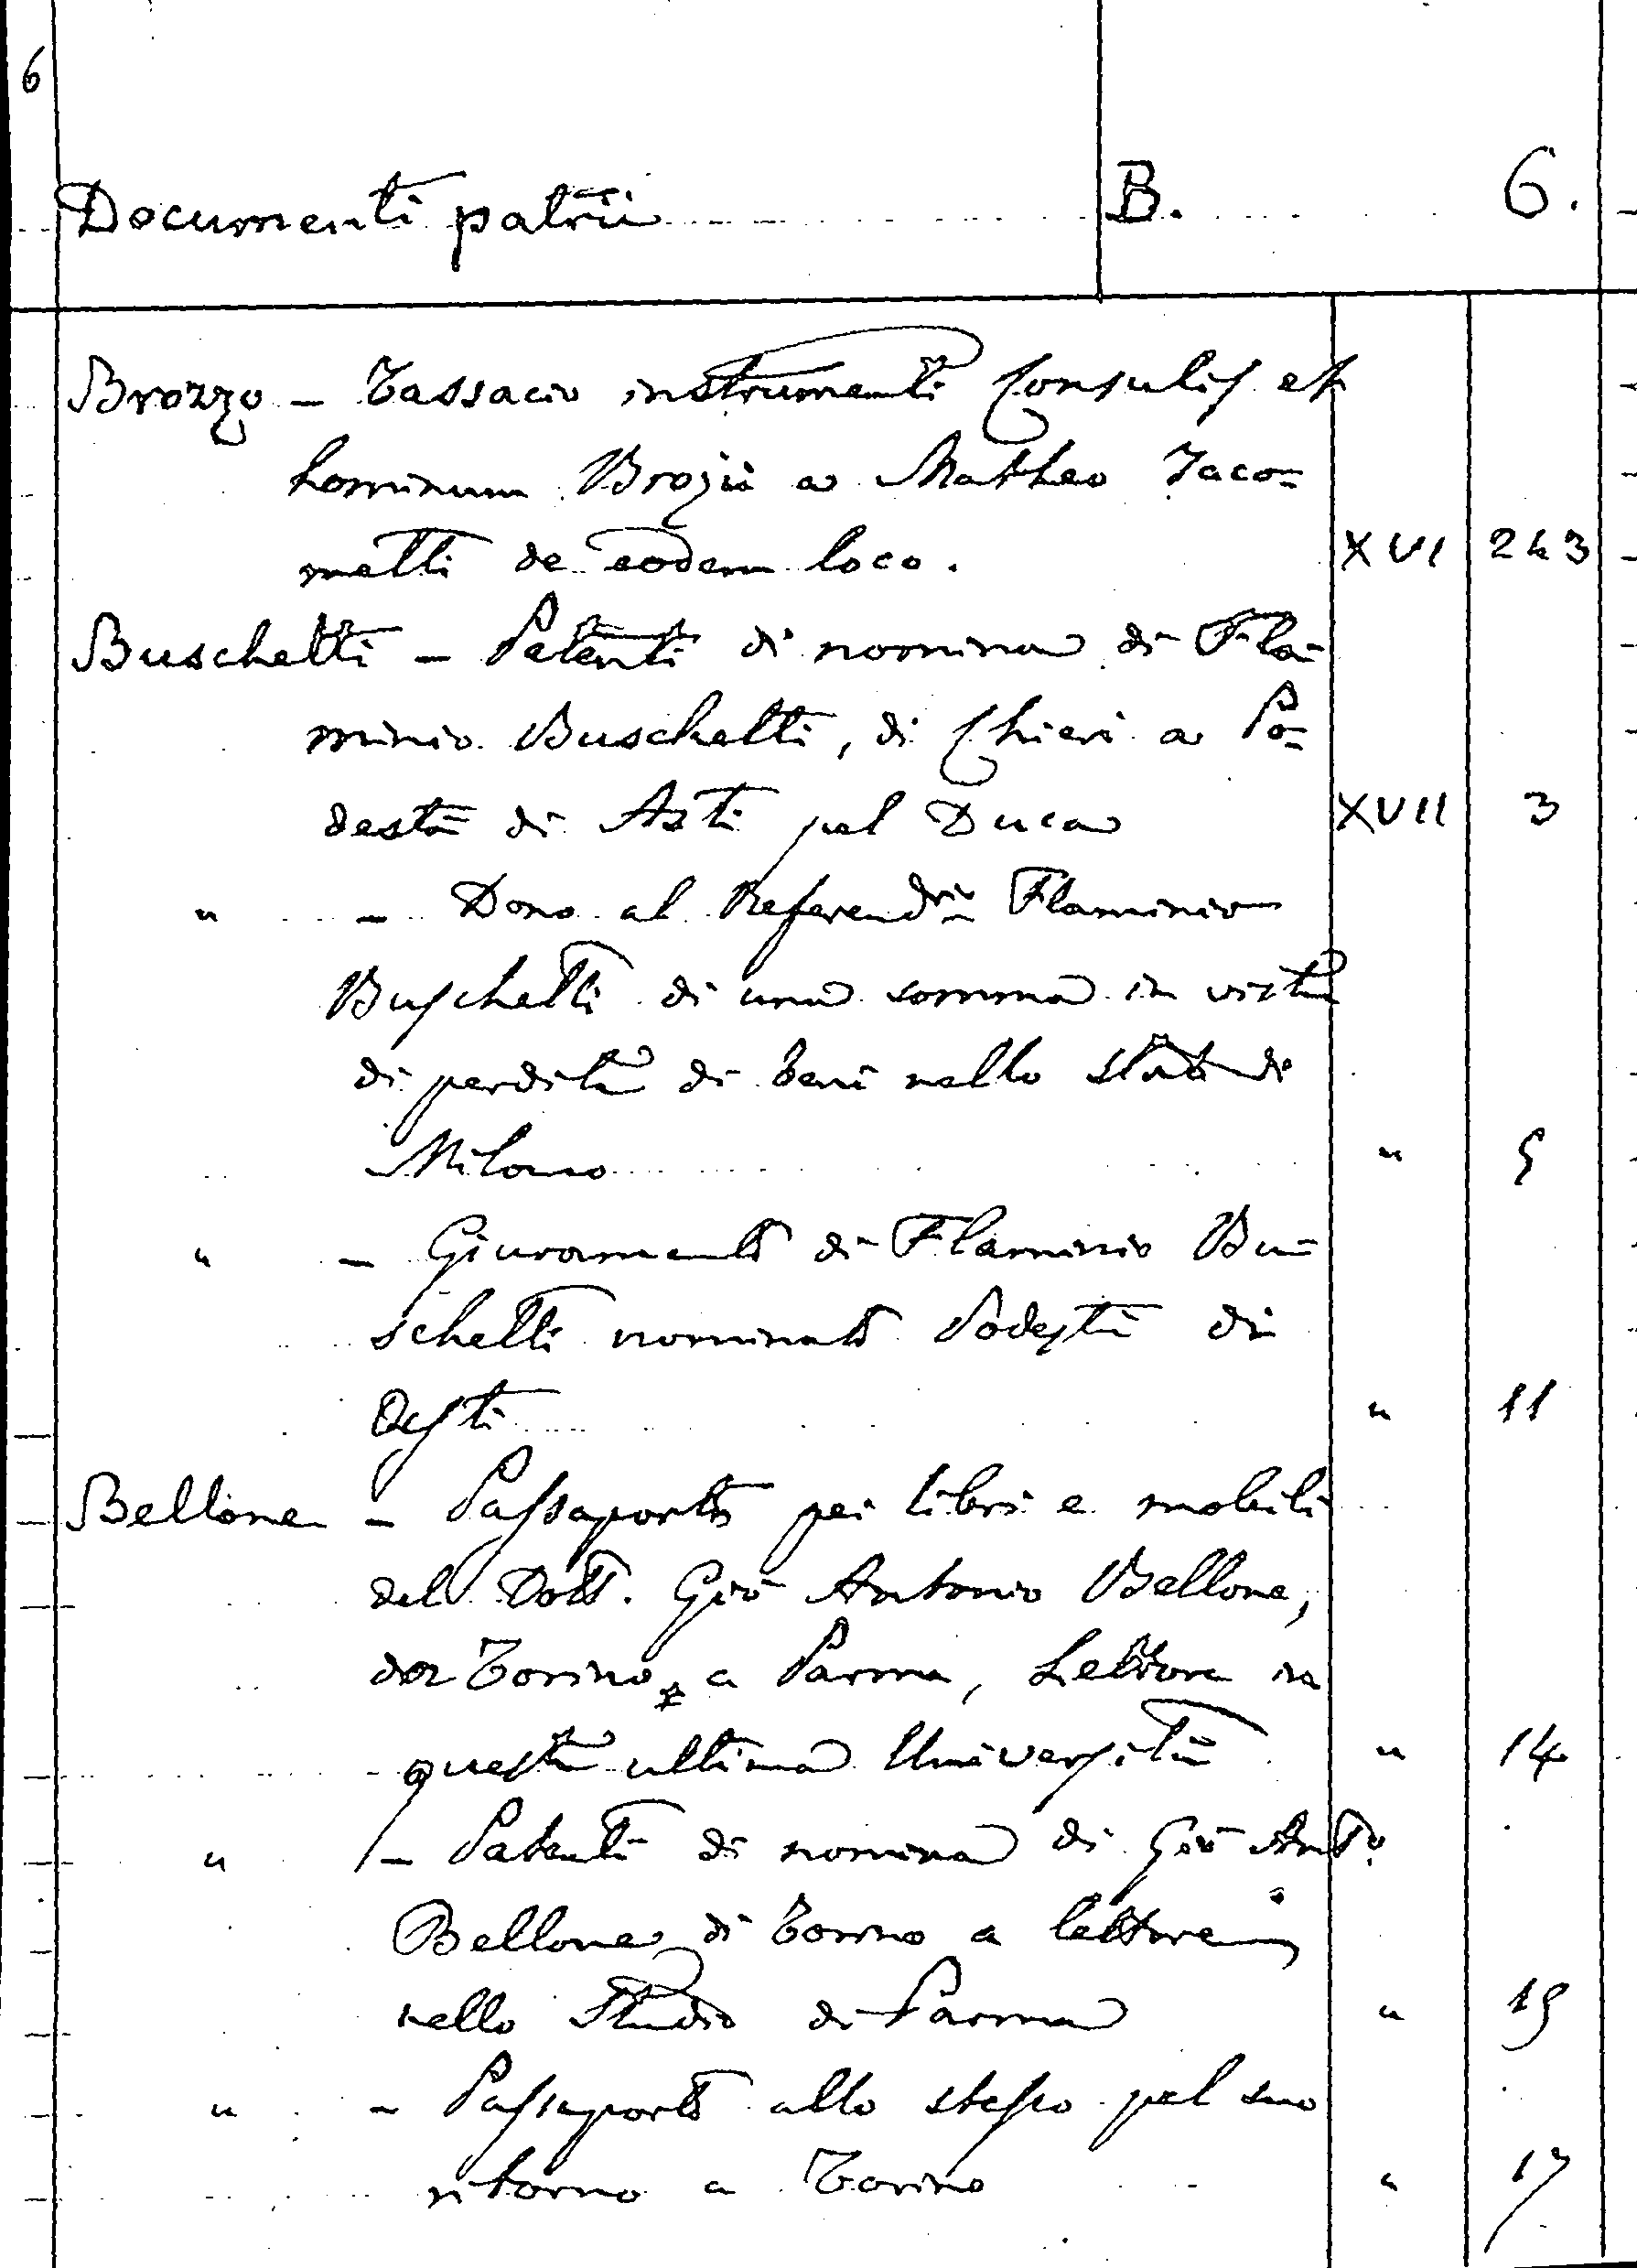 6
Documenti patrii B. 6.
Brozzo - Tassacio instrumenti Consulis et
hominum Brozii a Mattheo Jaco=
metti de eodem loco. XVI 243
Buschetti - Patenti di nomina di Fla=
minio Buschetti, di Chieri a Po=
destà di Asti pel Duca XVII 3
" - Dono al Referend.rio Flaminio
Buschetti di una somma in virtù
di perdita di beni nello Stato di
Milano " 5
" - Giuramento di Flaminio Bu=
schetti nominato Podestà di
Asti " 11
Bellone - Passaporto pei libri e mobili
del Dott. Giò Antonio Bellone,
da Torino a Parma, Lettore in
questa ultima Università " 14
" - Patenti di nomina di Giò Ant.o
Bellone di Torino a lettore
nello Studio di Parma " 15
" - Passaporto allo stesso pel suo
ritorno a Torino " 17